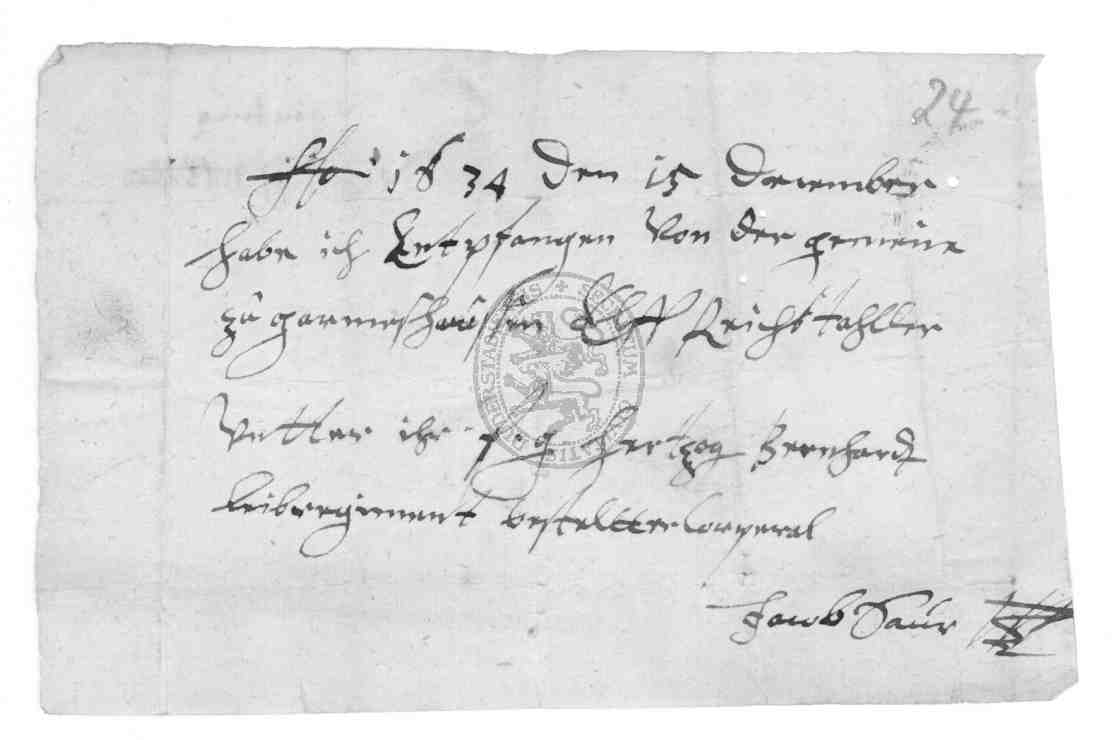 24
1634 den 15 December
habe ich Entpfangen Von der gemeine
zu garmeshausen Elff Reichstahller
Vntter ihr f. g. Hertzog Bernhardt
leibregiment bestellter Corperal
Jacob Saur